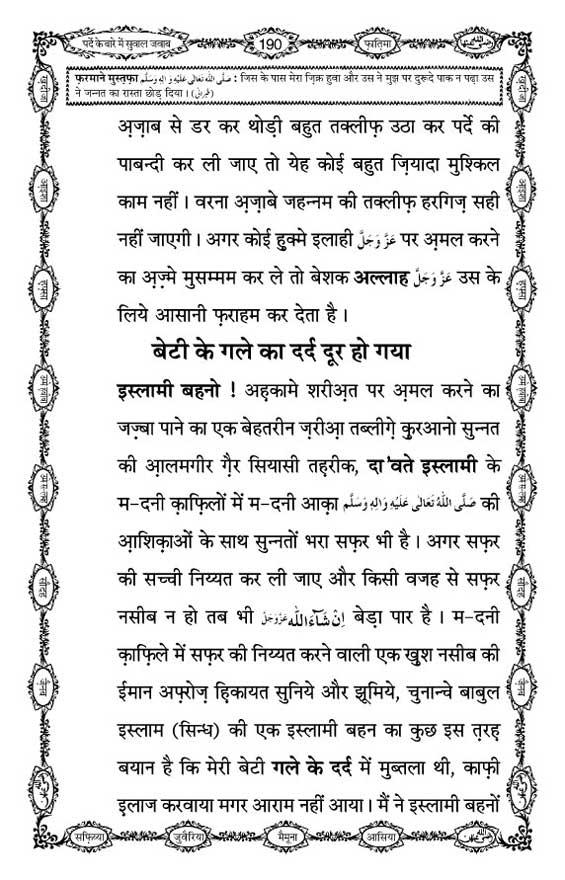 पर्दे के बारे में सुवाल जवाब
190
फ़ातिमा
फ़रमाने मुस्तफ़ा صَلَّى اللهُ تَعَالٰى عَلَيْهِ وَاٰلِهٖ وَسَلَّم : जिस के पास मेरा ज़िक्र हुवा और उस ने मुझ पर दुरूदे पाक न पढ़ा उस
ने जन्नत का रास्ता छोड़ दिया । (طبرانی)
अ़ज़ाब से डर कर थोड़ी बहुत तक्लीफ़ उठा कर पर्दे की
पाबन्दी कर ली जाए तो येह कोई बहुत ज़ियादा मुश्किल
काम नहीं । वरना अ़ज़ाबे जहन्नम की तक्लीफ़ हरगिज़ सही
नहीं जाएगी । अगर कोई हुक्मे इलाही عَزَّوَجَلَّ पर अ़मल करने
का अ़ज़्मे मुसम्मम कर ले तो बेशक अल्लाह عَزَّوَجَلَّ उस के
लिये आसानी फ़राहम कर देता है ।
बेटी के गले का दर्द दूर हो गया
इस्लामी बहनो ! अह़कामे शरीअ़त पर अ़मल करने का
जज़्बा पाने का एक बेहतरीन ज़रीआ़ तब्लीग़े क़ुरआनो सुन्नत
की आ़लमगीर ग़ैर सियासी तह़रीक, दा'वते इस्लामी के
म-दनी क़ाफ़िलों में म-दनी आक़ा صَلَّى اللهُ تَعَالٰى عَلَيْهِ وَاٰلِهٖ وَسَلَّم की
आ़शिक़ाओं के साथ सुन्नतों भरा सफ़र भी है । अगर सफ़र
की सच्ची निय्यत कर ली जाए और किसी वजह से सफ़र
नसीब न हो तब भी اِنْ شَآءَ اللّٰه عَزَّوَجَلَّ बेड़ा पार है । म-दनी
क़ाफ़िले में सफ़र की निय्यत करने वाली एक ख़ुश नसीब की
ईमान अफ़्रोज़ हि़कायत सुनिये और झूमिये, चुनान्चे बाबुल
इस्लाम (सिन्ध) की एक इस्लामी बहन का कुछ इस त़रह़
बयान है कि मेरी बेटी गले के दर्द में मुब्तला थी, काफ़ी
इ़लाज करवाया मगर आराम नहीं आया । मैं ने इस्लामी बहनों
सफ़िय्या
जुवैरिया
मैमूना
आसिया